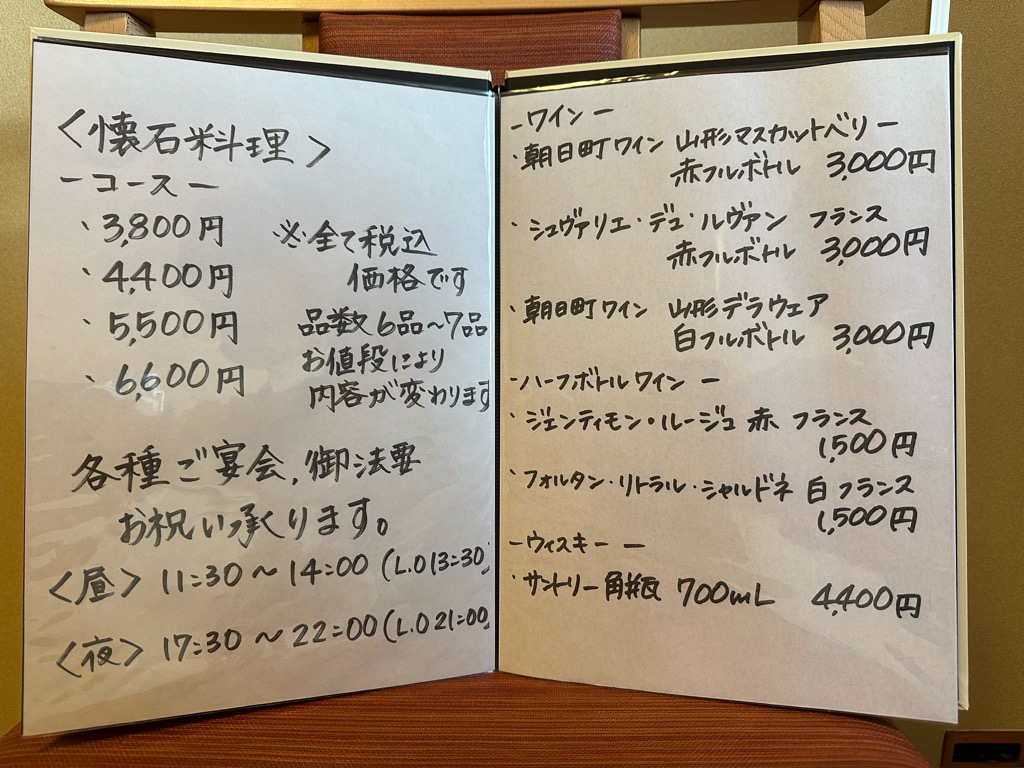 〈懐石料理〉
ーコースー
・3,800円
※全て税込
・4,400円
価格です
・5,500円
品数6品〜7品
・6,600円
お値段により
内容が変わります
各種ご宴会,御法要
お祝い承ります。
〈昼〉11:30〜14:00(L.O13:30
〈夜〉17:30〜22:00(L.O21:00
ーワインー
・朝日町ワイン 山形マスカットベリー
赤フルボトル 3,000円
・シュヴァリエ・デュ・ルヴァン フランス
赤フルボトル 3,000円
・朝日町ワイン 山形デラウェア
白フルボトル 3,000円
ーハーフボトルワインー
・ジェンティモン・ルージュ 赤 フランス
1,500円
・フォルタン・リトラル・シャルドネ 白 フランス
1,500円
ーウィスキーー
・サントリー角瓶 700mL 4,400円